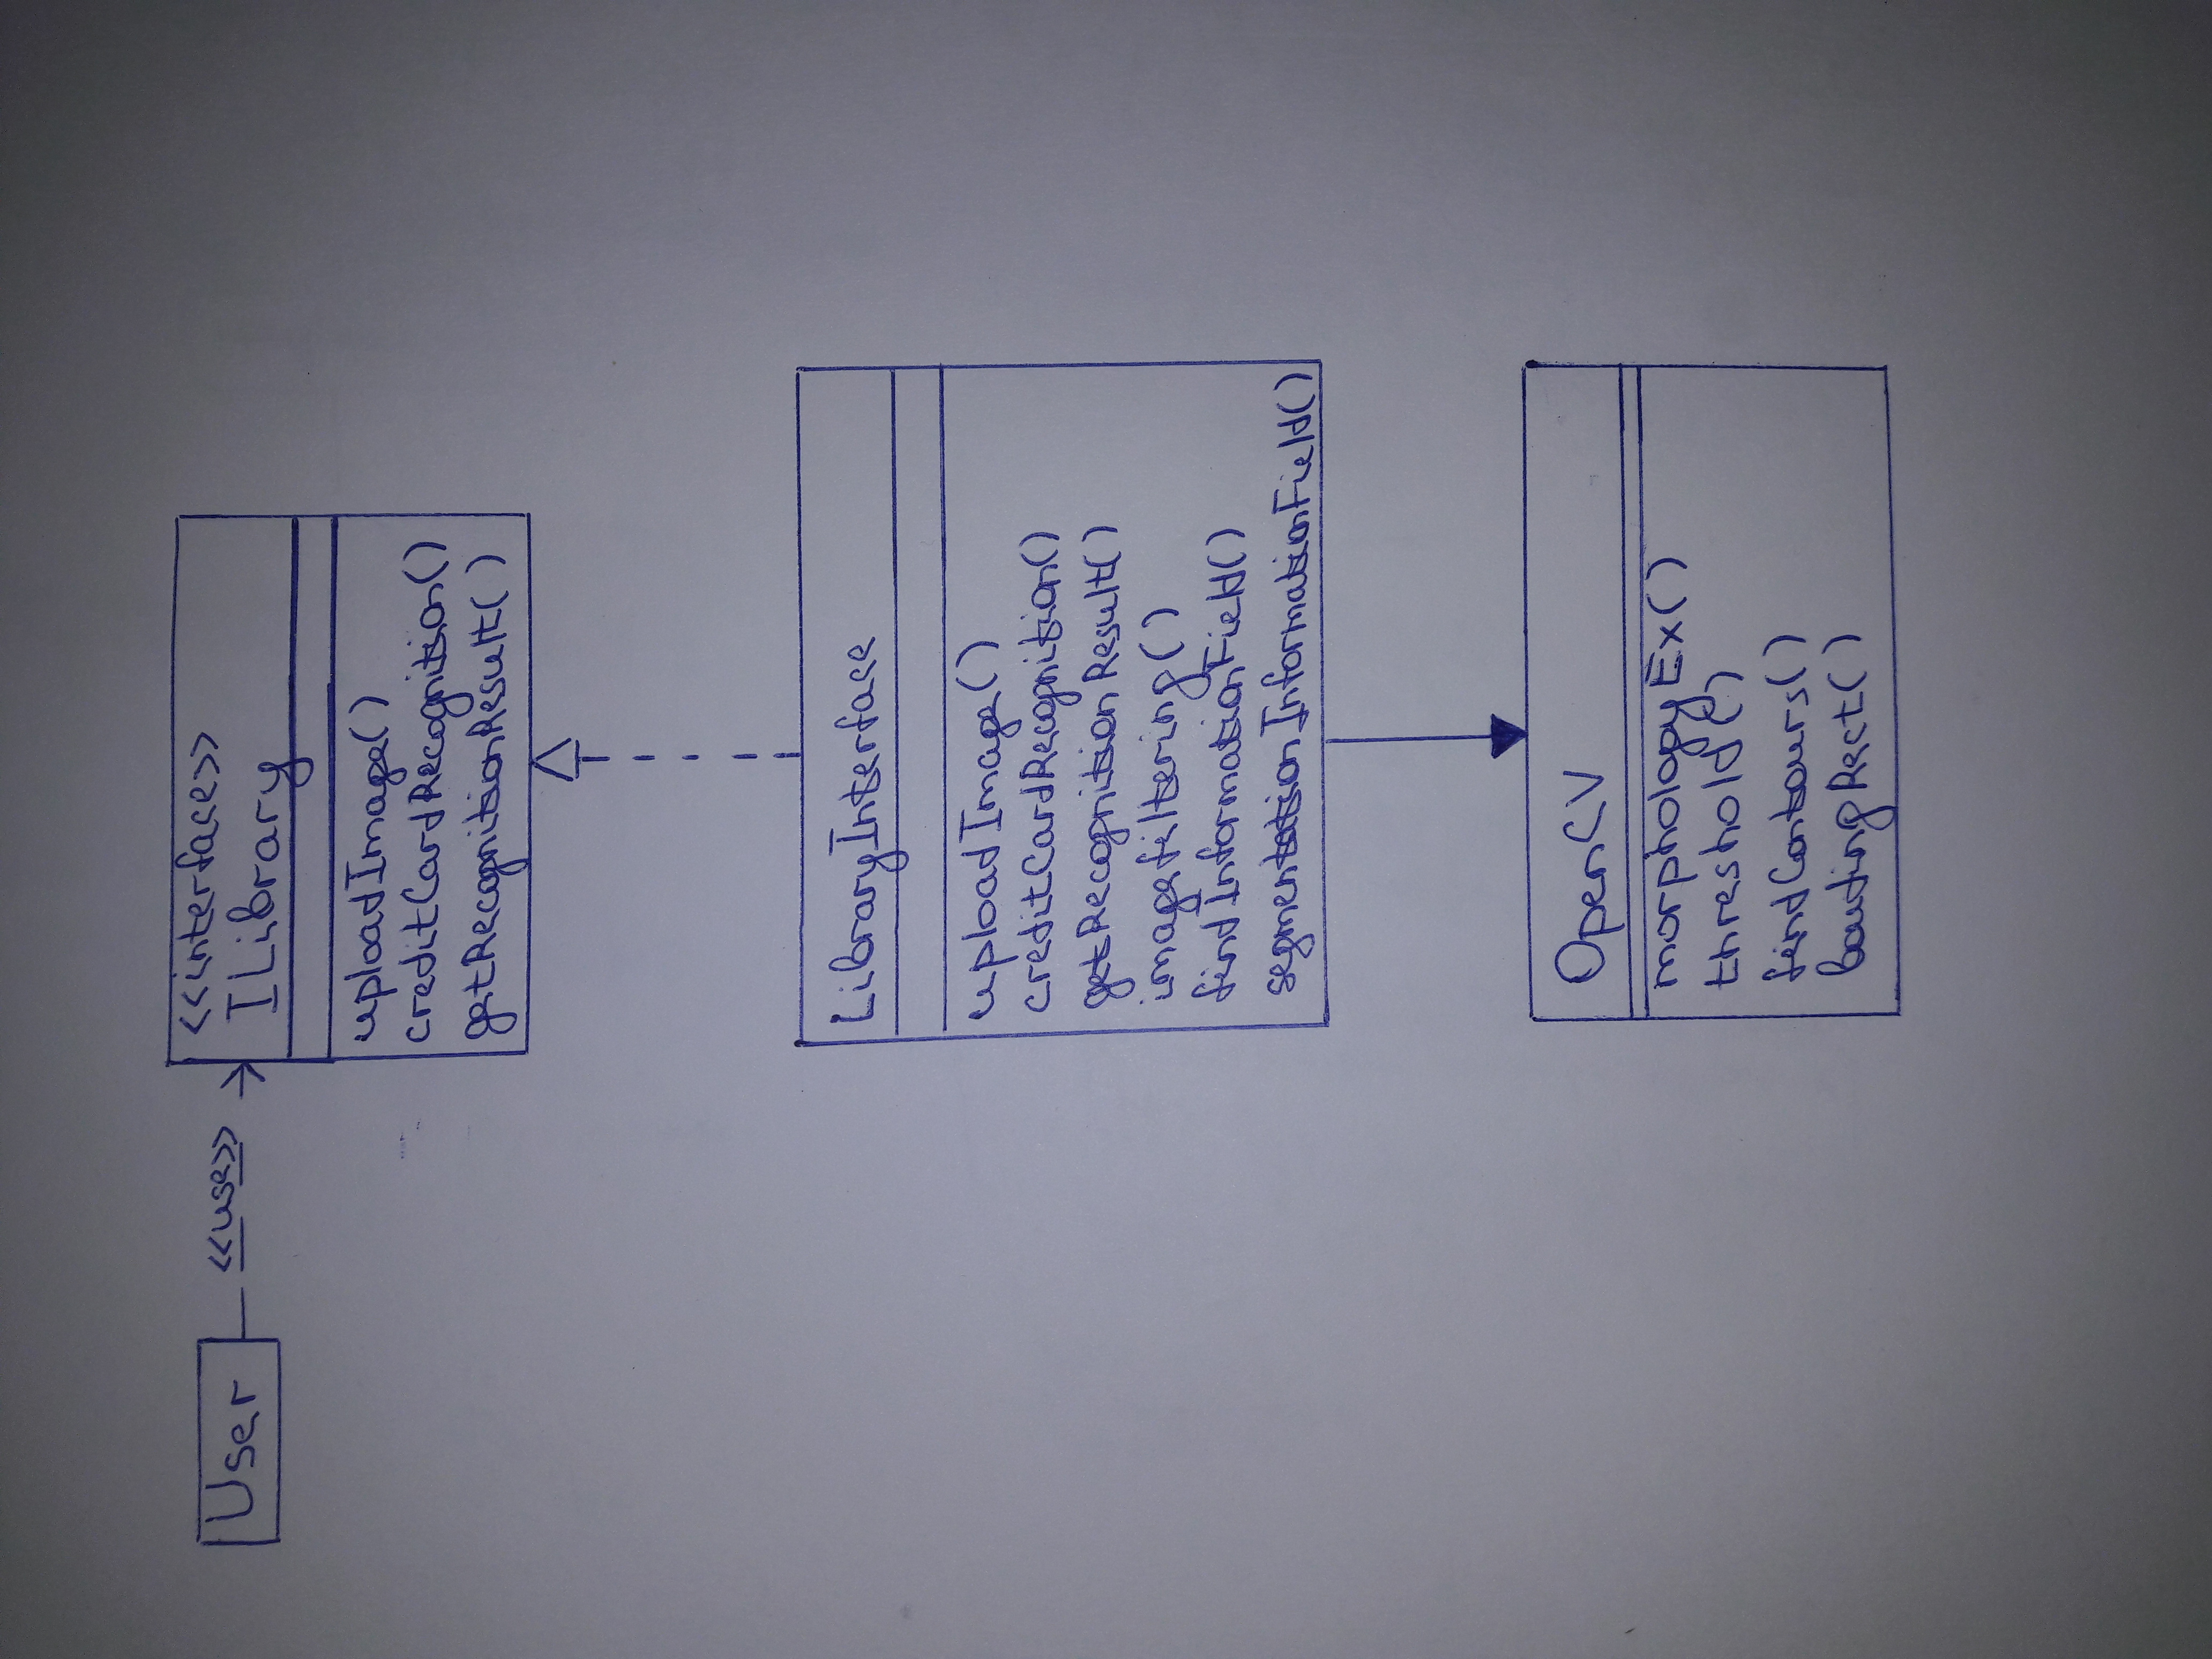 User
<<use>>
<<interface>>
ILibrary
uploadImage()
creditCardRecognition()
getRecognitionResult()
LibraryInterface
uploadImage()
creditCardRecognition()
getRecognitionResult()
imagefiltering()
findInformationField()
segmentationInformationField()
OpenCV
morphologyEx()
threshold()
findContours()
boudingRect()